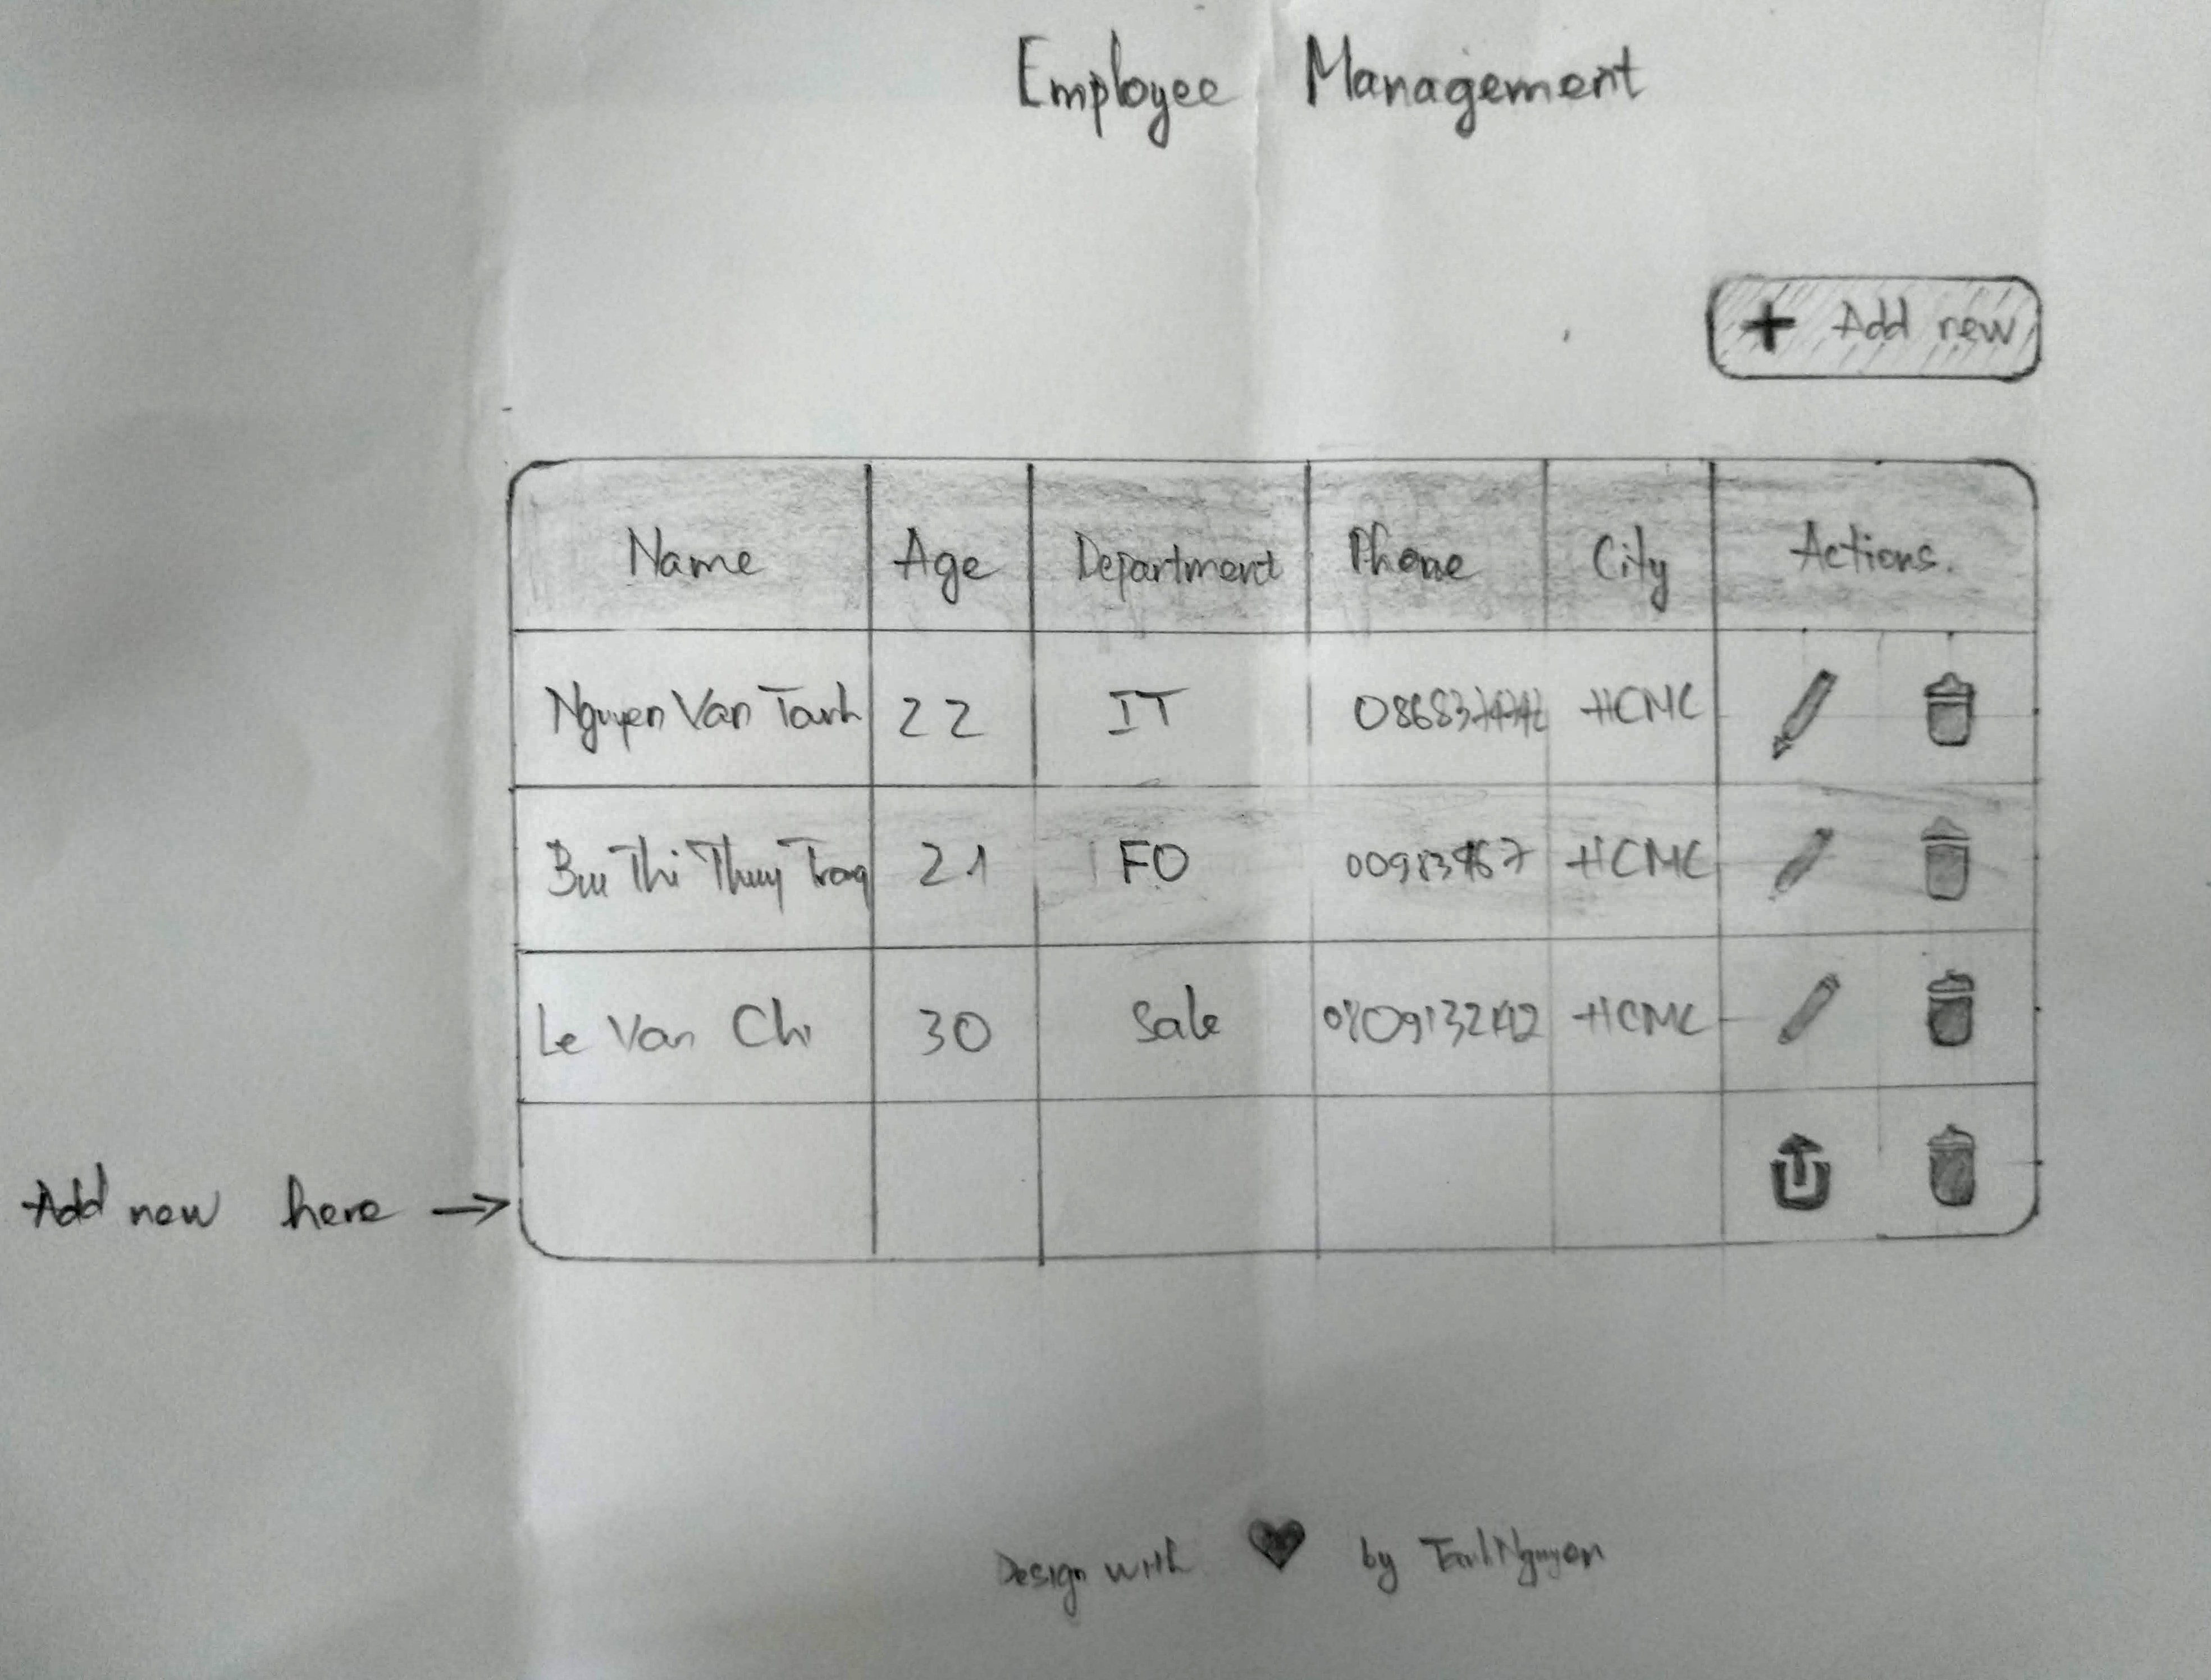 Employee Management
+ Add new
Name Age Department Phone City Actions.
Nguyen Van Tanh 22 IT HCMC
Bui Thi Thuy Trang 21 FO HCMC
Le Van Chi 30 Sale HCMC
Add new here →
Design with ♥ by TanhNguyen